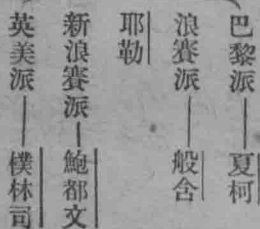 巴黎派——夏柯
浪賽派——般含
耶勒
新浪賽派——鮑都文
英美派——樸林司